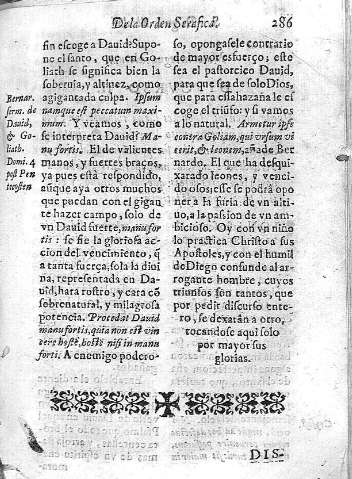 De la Orden Serafica.
286
fin escoge a Dauid: Supo-
ne el santo, que en Go-
liath se significa bien la
soberuia, y altiuez, como
agigantada culpa. Ipsum
namque est peccatum maxi-
mum. Y veamos, como
se interpreta Dauid? Ma-
nu fortis. El de valientes
manos, y fuertes braços,
ya pues està respondido,
aũque aya otros muchos
que puedan con el gigan
te hazer campo, solo de
vn Dauid fuerte, manu for
tis: se fie la gloriosa ac
cion del vencimiento, q̃
a tanta fuerça, sola la diui
na, representada en Da-
uid, hara rostro, y cara cõ
sobrenatural, y milagrosa
potencia. Procedat Dauid
manu fortis, quia non est vin
cere hostẽ, hostẽ nisi in manu
forti. A enemigo podero-
Bernar.
serm. de
Dauid,
& Go-
liath.
Domi. 4
post Pen
tecosten
so, opongasele contrario
de mayor esfuerço, este
sea el pastorcico Dauid,
para que sea de solo Dios,
que para essa hazaña le ci
coge el triũfo: y si vamos
a lo natural. Armetur ipse
contra Goliam, qui vrsum vi
cerit, & leonem, añade Ber
nardo. El que ha desqui-
xarado leones, y venci-
do osos; esse se podrà opo
ner a la furia de vn alti-
uo, a la passion de vn am-
bicioso. Oy con vn niño
lo practica Christo a sus
Apostoles, y con el humil
de Diego confunde al ar-
rogante hombre, cuyos
triunfos son tantos, que
por pedir discurso ente-
ro, se dexaràn a otro,
tocandose aqui solo
por mayor sus
glorias.
DIS-